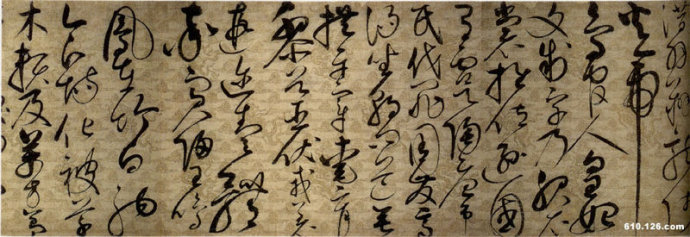 潛羽翔龍師
火帝
鳥官人皇始
文制字乃服衣
裳推位遜國
有虞陶唐弔
民伐罪周發商
湯坐朝問道垂
拱平章愛育
黎首臣伏戎羌
遐邇壹體
率賓歸王鳴
鳳在竹白駒
食場化被草
木賴及萬方蓋
610.126.com